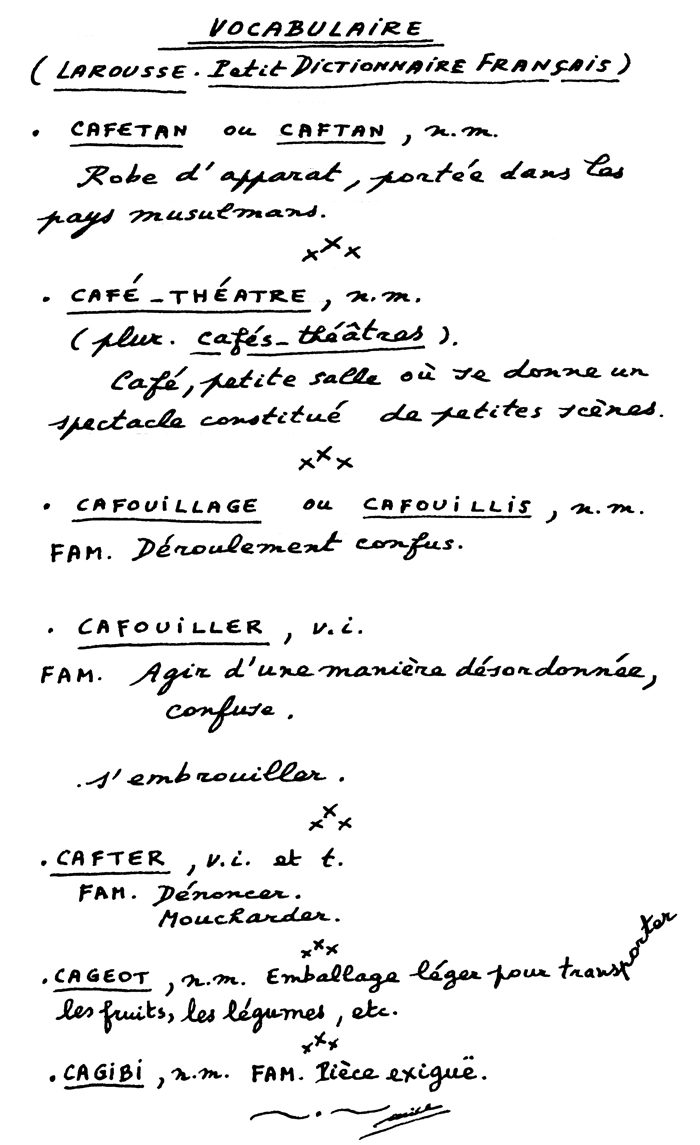 VOCABULAIRE
(LAROUSSE. Petit DICTIONNAIRE FRANÇAIS)
. CAFETAN ou CAFTAN, n.m.
Robe d'apparat, portée dans les
pays musulmans.
xxx
. CAFÉ-THÉATRE, n.m.
(plur. cafés-théâtres).
Café, petite salle où se donne un
spectacle constitué de petites scènes.
xxx
. CAFOUILLAGE ou CAFOUILLIS, n.m.
FAM. Déroulement confus.
. CAFOUILLER, v.i.
FAM. Agir d'une manière désordonnée,
confuse.
.s'embrouiller.
xxx
. CAFTER, v.i. et t.
FAM. Dénoncer.
Moucharder.
xxx
. CAGEOT, n.m. Emballage léger pour transporter
les fruits, les légumes, etc.
xxx
. CAGIBI, n.m. FAM. Pièce exiguë.